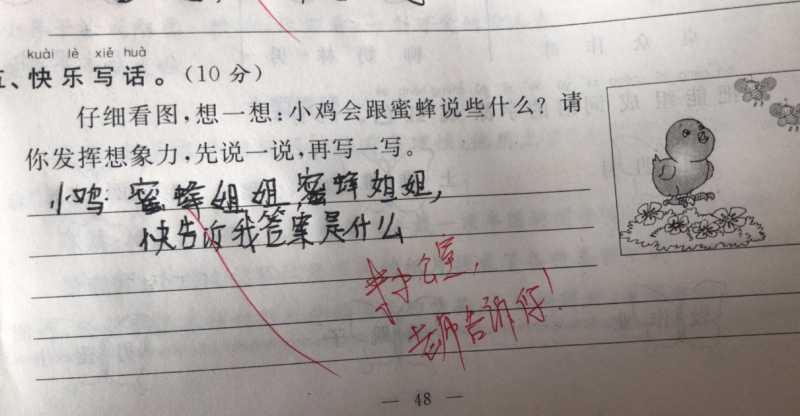 kuài lè xiě huà
五、快乐写话。(10分)
仔细看图,想一想:小鸡会跟蜜蜂说些什么?请
你发挥想象力,先说一说,再写一写。
小鸡:蜜蜂姐姐蜜蜂姐姐,
快告诉我答案是什么
来办公室,
老师告诉你!
— 48 —